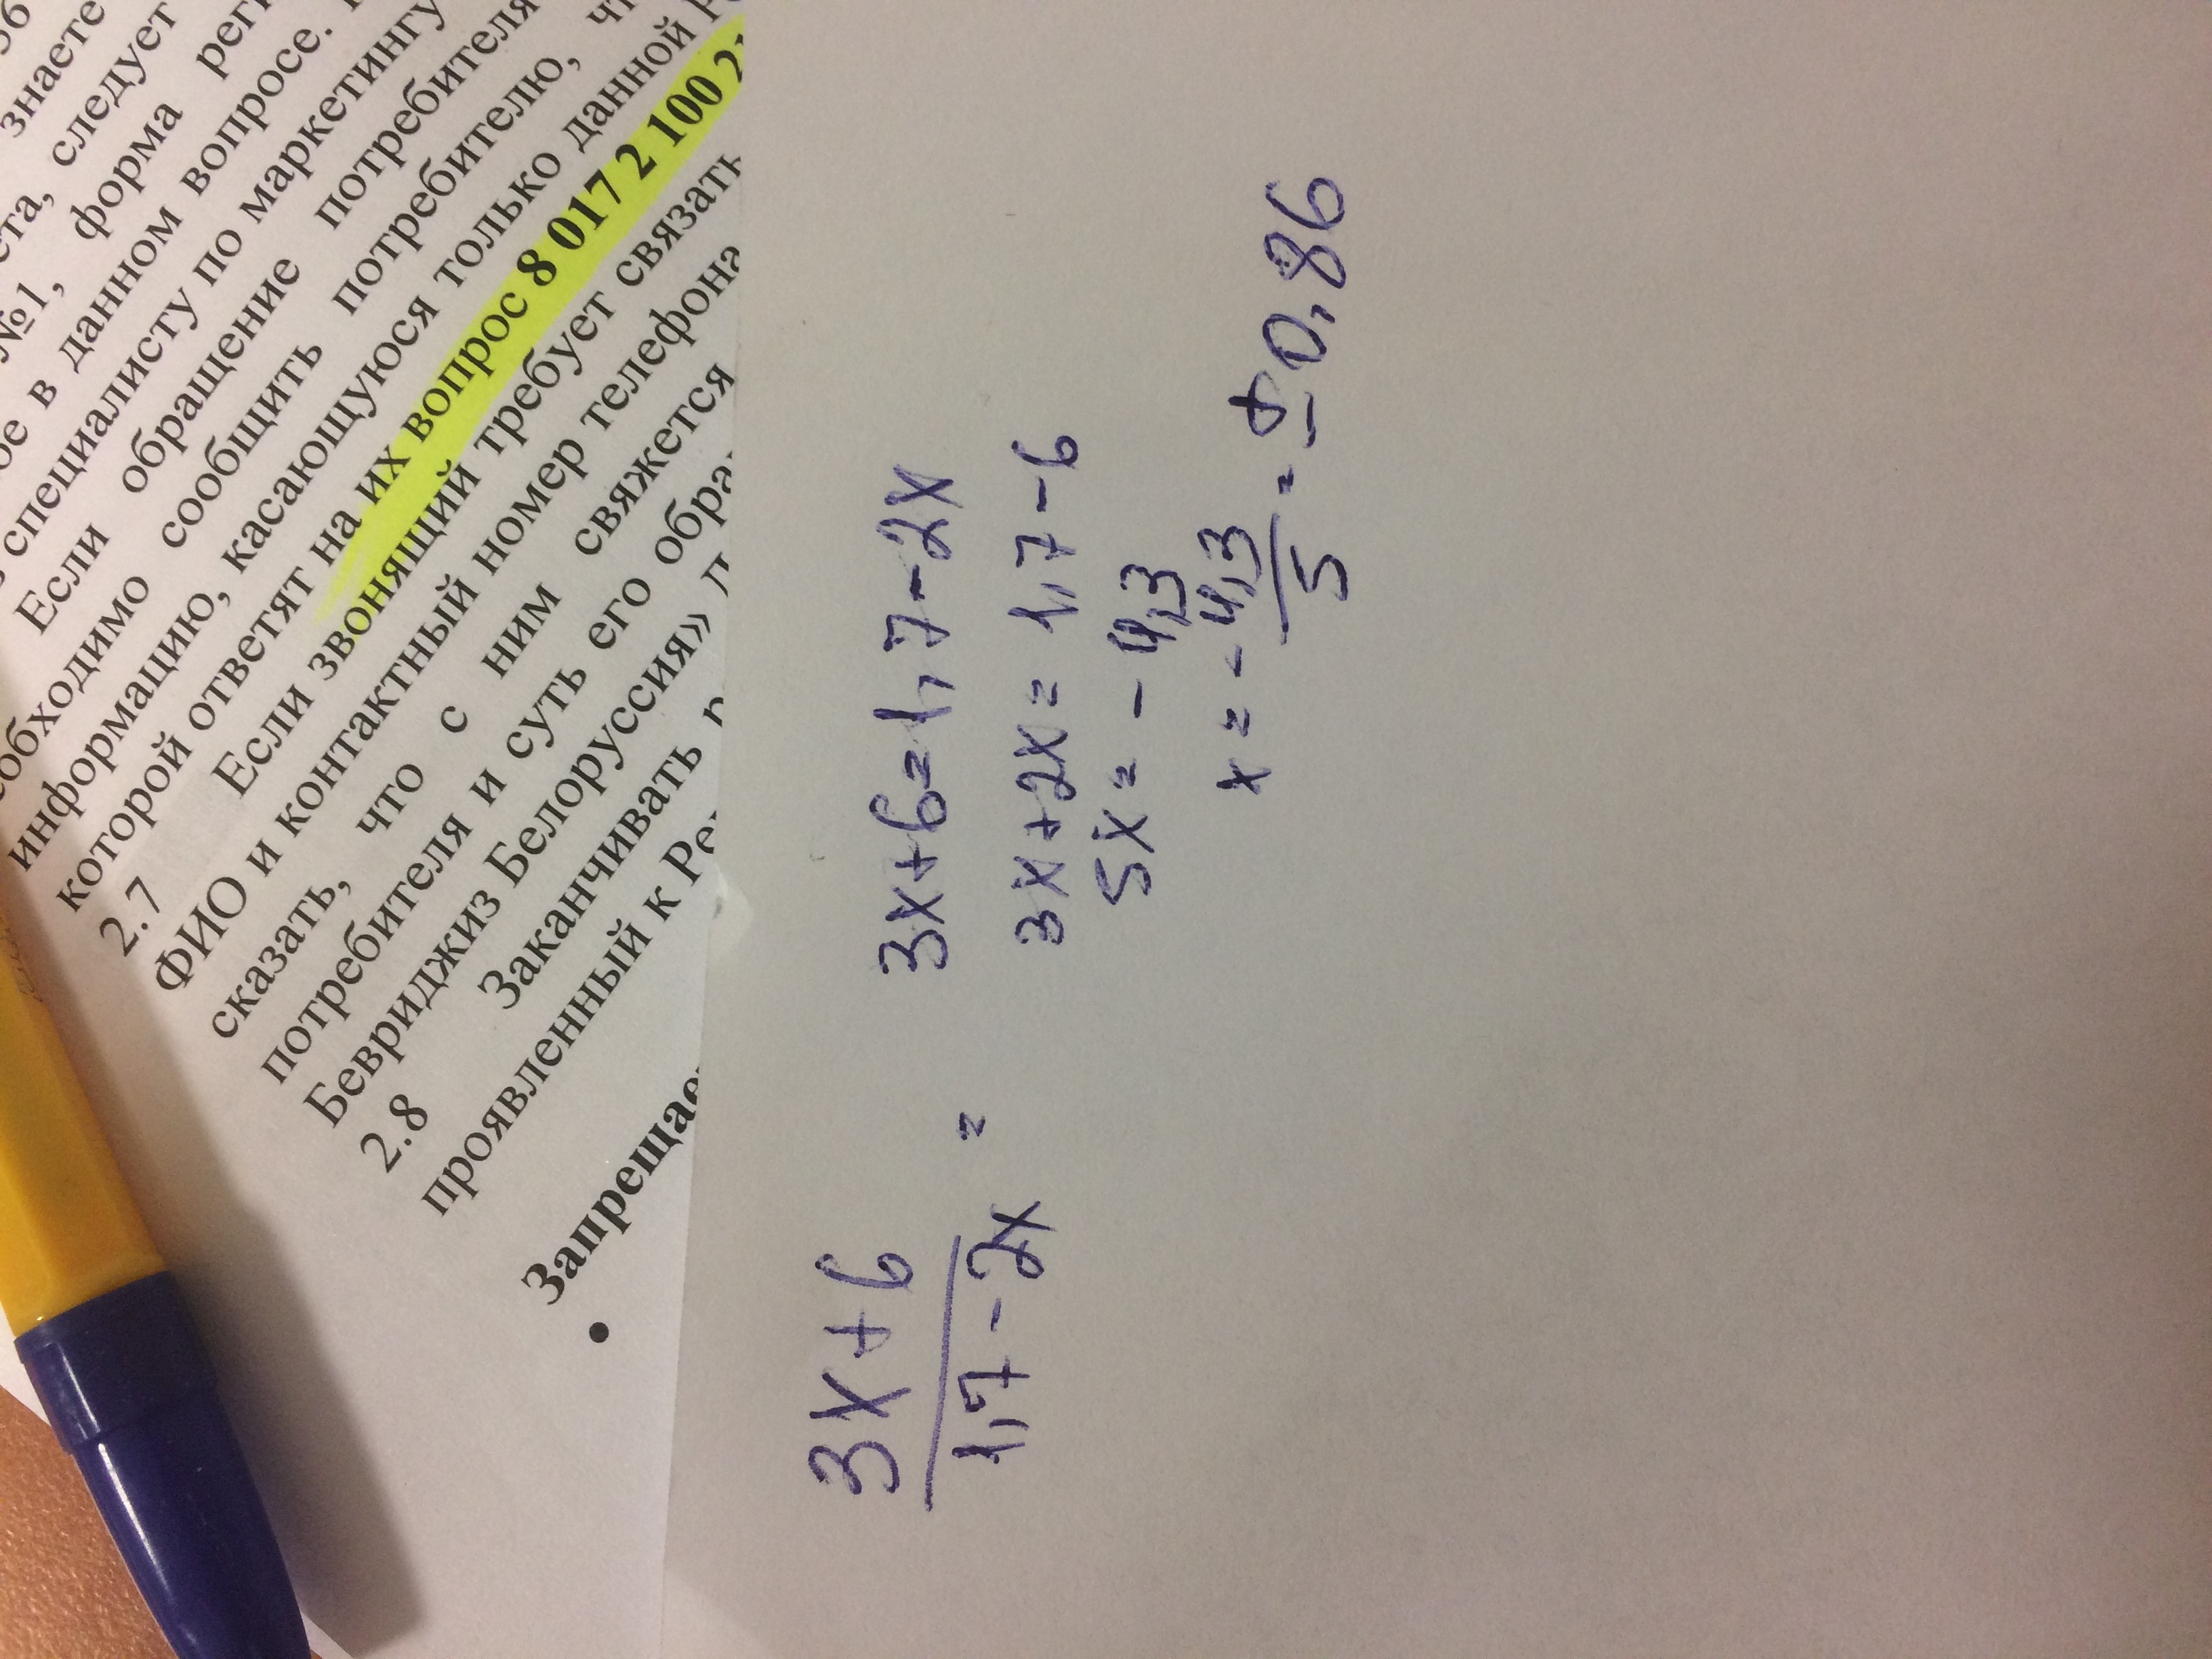 знаете
ста, следует
№1, форма реги
ое в данном вопросе.
специалисту по маркетингу
Если обращение потребителя
необходимо сообщить потребителю, чт
информацию, касающуюся только данной
которой ответят на их вопрос 8 017 2 100 2
2.7 Если звонящий требует связать
ФИО и контактный номер телефона
сказать, что с ним свяжется
потребителя и суть его обра
Бевриджиз Белоруссия»
2.8 Заканчивать
проявленный к Ре
• Запрещае
3x+6
1,7-2x
=
3x+6=1,7-2x
3x+2x=1,7-6
5x=-4,3
x=-4,3/5=-0,86